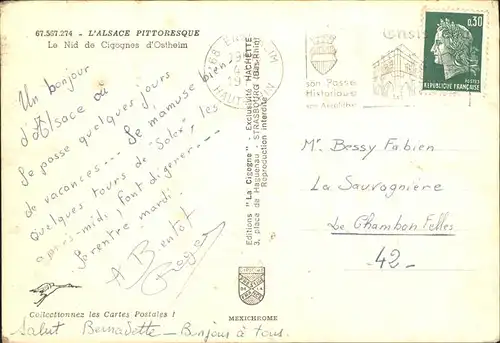 67.567.274 - L'ALSACE PITTORESQUE
Le Nid de Cigognes d'Ostheim
Un bonjour
d'Alsace où
Je passe quelques jours
de vacances... Je m'amuse bien
Quelques tours de "Solex", les
après-midi, font digérer...
Je rentre mardi.
A Bientôt
Roger
Collectionnez les Cartes Postales !
Salut Bernadette - Bonjour à tous.
Editions "La Cigogne" - Exclusivité HACHETTE
3, place de Haguenau - STRASBOURG (Bas-Rhin)
Reproduction interdite
MEXICHROME
68
HAUT-RHIN
son Passé
Historique
0,30
REPUBLIQUE FRANÇAISE
Mr Bessy Fabien
La Sauvagnière
Le Chambon Felles
42-